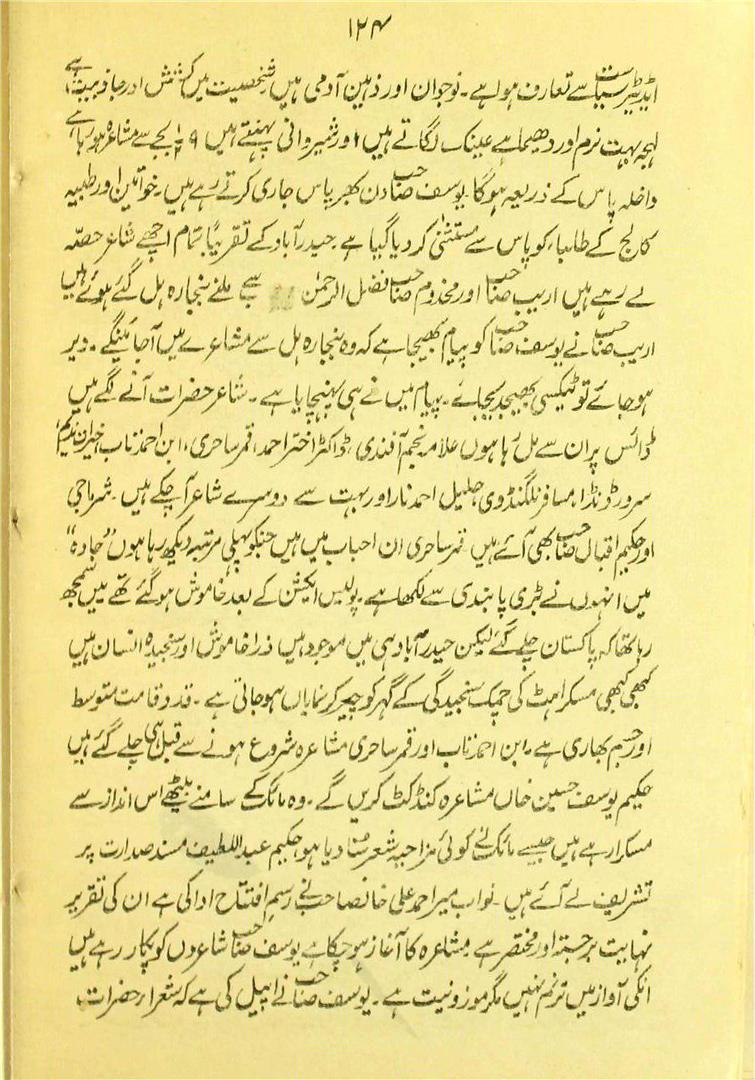 ۱۲۴
ایڈیٹر سیاست سے تعارف ہوا ہے۔ نوجوان اور ذہین آدمی ہیں شخصیت میں کشش اور جاذبیت ہے
لہجہ بہت نرم اور دھیما ہے عینک لگاتے ہیں اور شیروانی پہنتے ہیں ۹ بجے سے مشاعرہ ہو رہا ہے
داخلہ پاس کے ذریعہ ہوگا یوسف صاحب دن بھر پاس جاری کرتے رہے ہیں۔ خواتین اور طبیہ
کالج کے طلباء کو پاس سے مستثنیٰ کر دیا گیا ہے۔ حیدرآباد کے تقریباً تمام اچھے شاعر حصّہ
لے رہے ہیں اریب صاحب اور مخدوم صاحب فضل الرحمٰن سے ملنے بنجارہ ہل گئے ہوئے ہیں
اریب صاحب نے یوسف صاحب کو پیام بھیجا ہے کہ وہ بنجارہ ہل سے مشاعرے میں آجائینگے۔ دیر
ہوجائے تو ٹیکسی بھیجدیجائے۔ پیام میں نے ہی پہنچایا ہے۔ شاعر حضرات آنے لگے ہیں
ڈائس پر ان سے مل رہا ہوں علامہ نجم آفندی، ڈاکٹر اختر احمد، قمر ساحری، ابن احمد تاب، خیرات ندیم،
سرور ڈنڈا، مسافر نلگنڈوی جلیل احمد نار اور بہت سے دوسرے شاعر آچکے ہیں۔ شمراجی
اور حکیم اقبال صاحب بھی آئے ہیں۔ قمر ساحری ان احباب میں ہیں جنکو پہلی مرتبہ دیکھ رہا ہوں "جادہ"
میں انہوں نے بڑی پابندی سے لکھا ہے۔ پولیس ایکشن کے بعد خاموش ہو گئے تھے میں سمجھ
رہا تھا کہ پاکستان چلے گئے لیکن حیدرآباد ہی میں موجود ہیں ذرا خاموش اور سنجیدہ انسان ہیں
کبھی کبھی مسکراہٹ کی چمک سنجیدگی کے گہر کو چیر کر نمایاں ہوجاتی ہے۔ قد و قامت متوسط
اور جسم بھاری ہے۔ ابن احمد تاب اور قمر ساحری مشاعرہ شروع ہونے سے قبل ہی چلے گئے ہیں
حکیم یوسف حسین خاں مشاعرہ کنڈکٹ کریں گے۔ وہ مائک کے سامنے بیٹھے اس انداز سے
مسکرا رہے ہیں جیسے مائک نے کوئی مزاحیہ شعر سنا دیا ہو حکیم عبداللطیف مسند صدارت پر
تشریف لے آئے ہیں۔ نواب میر احمد علی خانصاحب نے رسم افتتاح ادا کی ہے ان کی تقریر
نہایت برجستہ اور مختصر ہے۔ مشاعرہ کا آغاز ہوچکا ہے یوسف صاحب شاعروں کو پکار رہے ہیں
انکی آواز میں ترنم نہیں مگر موزونیت ہے۔ یوسف صاحب نے اپیل کی ہے کہ شعراء حضرات